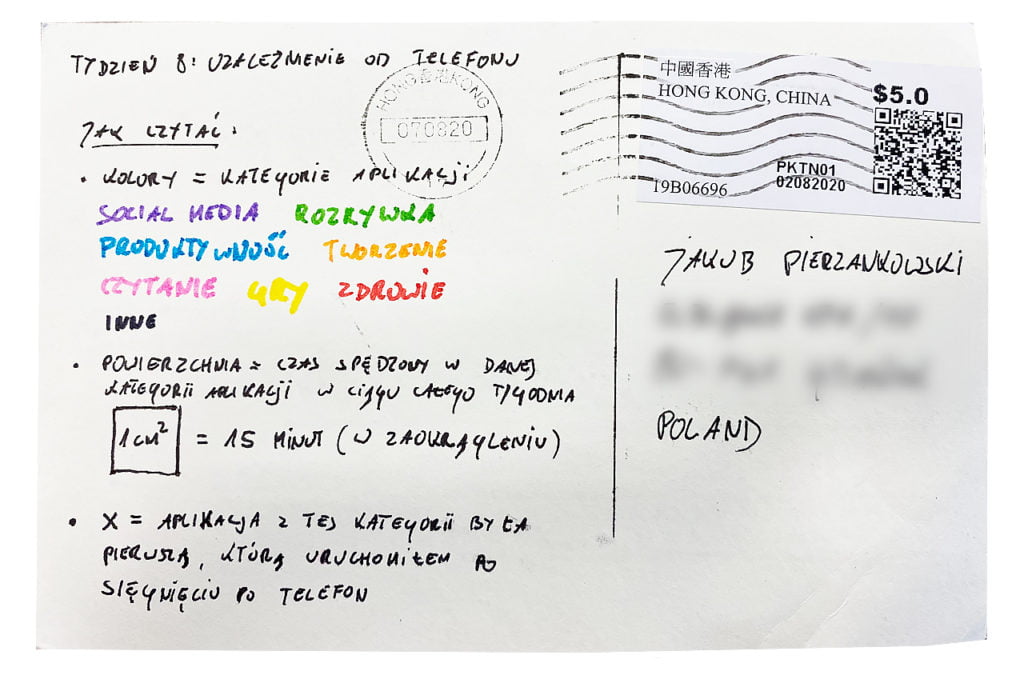 TYDZIEŃ 8: UZALEŻNIENIE OD TELEFONU
JAK CZYTAĆ:
• KOLORY = KATEGORIE APLIKACJI
SOCIAL MEDIA ROZRYWKA
PRODUKTYWNOŚĆ TWORZENIE
CZYTANIE GRY ZDROWIE
INNE
• POWIERZCHNIA = CZAS SPĘDZONY W DANEJ
KATEGORII APLIKACJI W CIĄGU CAŁEGO TYGODNIA
1cm² = 15 MINUT (W ZAOKRĄGLENIU)
• X = APLIKACJA Z TEJ KATEGORII BYŁA
PIERWSZĄ, KTÓRĄ URUCHOMIŁEM PO
SIĘGNIĘCIU PO TELEFON
HONG 香港 KONG
070820
中國香港
HONG KONG, CHINA
$5.0
PKTN01
19B06696
02082020
JAKUB PIERZANKOWSKI
POLAND